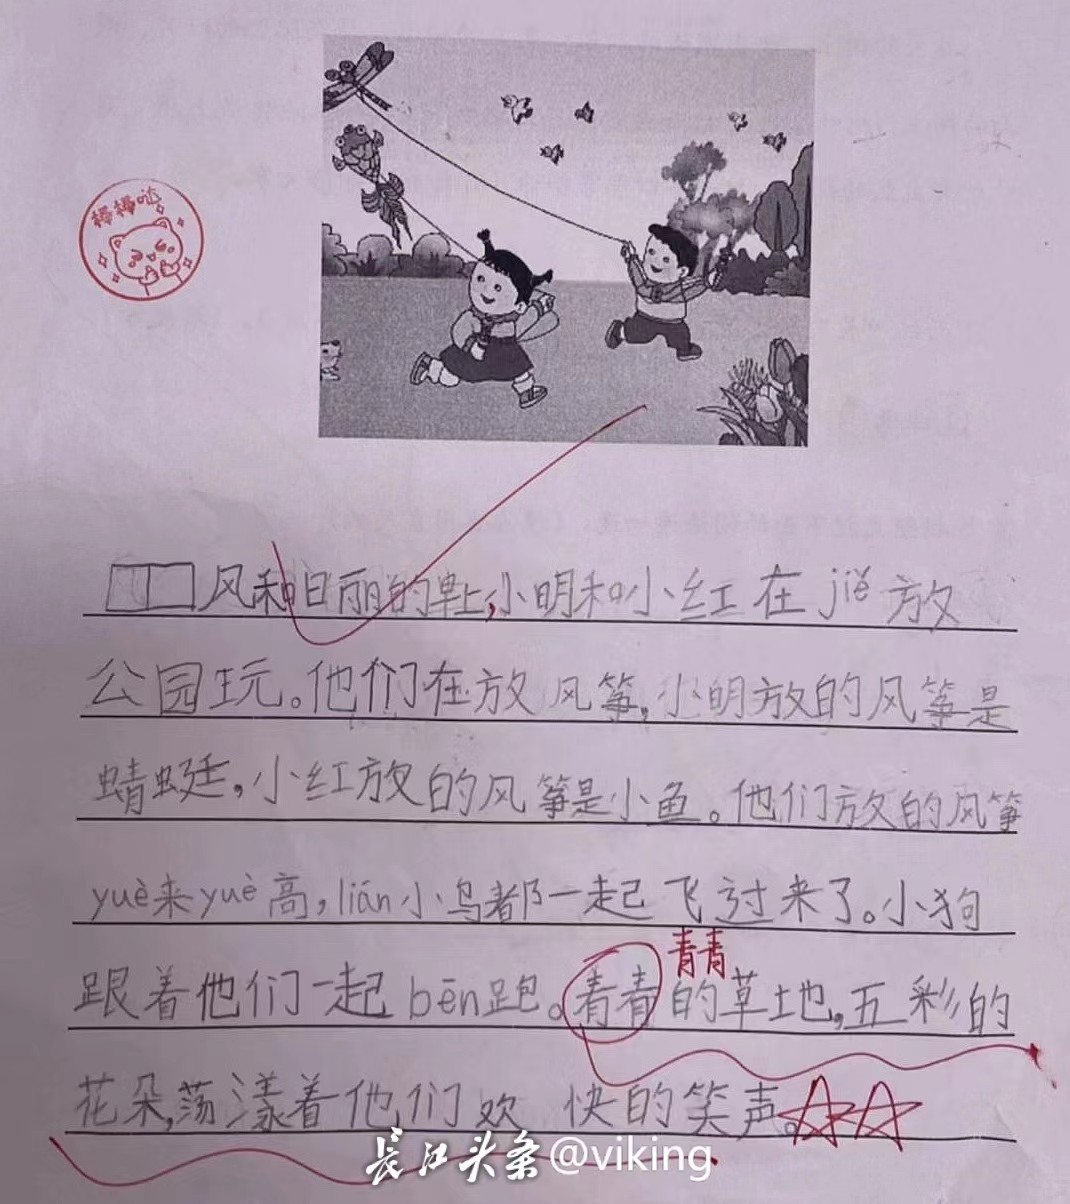 棒棒哒
风和日丽的早上,小明和小红在jiě放
公园玩。他们在放风筝,小明放的风筝是
蜻蜓,小红放的风筝是小鱼。他们放的风筝
yuè来yuè高,lián小鸟都一起飞过来了。小狗
青青
跟着他们一起bēn跑。青青的草地,五彩的
花朵,荡漾着他们欢快的笑声。
长江头条@viking